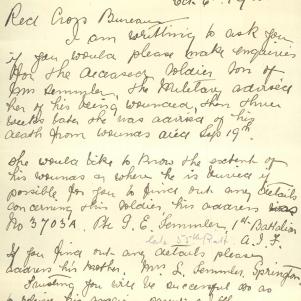 Oct 6th 19
Red Cross Bureau
I am writting to ask you
if you would please make enquiries
for the deceased Soldier Son of
Mrs Semmler, the Military advised
her of his being wounded, then three
weeks later she was advised of his
death from wounds died Sep 19th
She would like to know the extent of
his wounds or where he is buried if
possible for you to find out any details
concerning this Soldier his address
No 3703A. Pte G. E. Semmler, 1st Battalion
late 55th Batt A.I.F.
If you find out any details please
address his Mother, Mrs L. Semmler, Springton
Trusting you will be successful so as